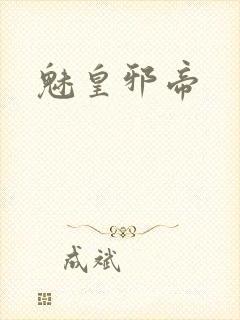 魅皇邪帝
成斌